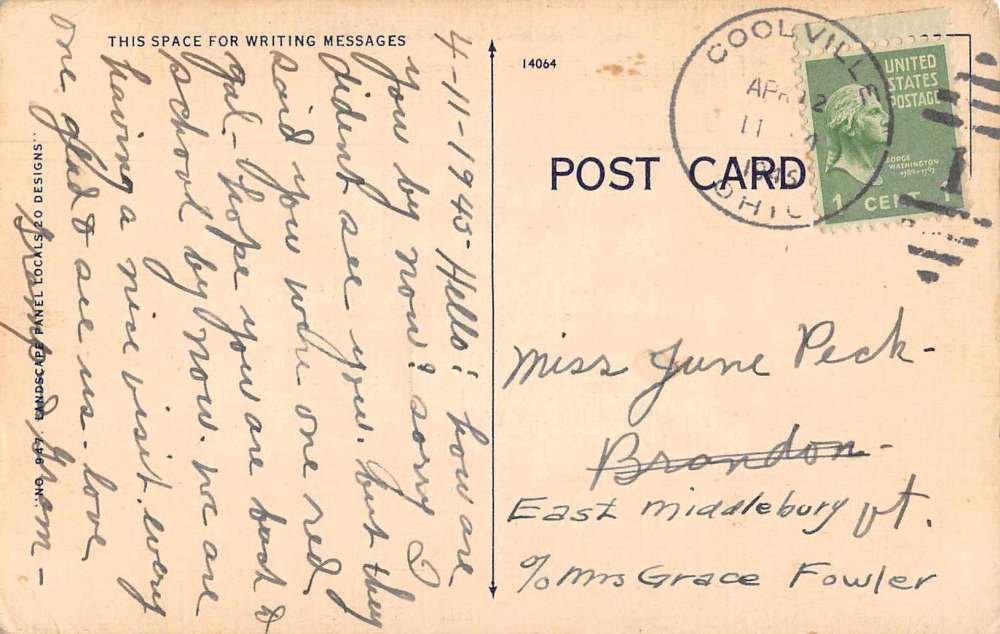 THIS SPACE FOR WRITING MESSAGES
4-11-1945- Hello! how are
you by now? sorry I
dident see you. but they
said you were one red
gal- hope you are back to
school by now. we are
having a nice visit. every
one glad to see us. love
Gramp & Gram-
"NO. 947. LANDSCAPE PANEL LOCALS 20 DESIGNS"
14064
POST CARD
COOLVILLE
APR 12
11
1945
OHIO
UNITED
STATES
POSTAGE
GEORGE
WASHINGTON
1789-1797
1 CENT 1
Miss June Peck-
Brandon-
East Middlebury Vt.
c/o Mrs Grace Fowler